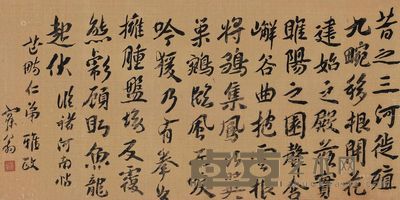 昔之三河徙殖
九畹移根開花
建始之殿落實
睢陽之園聲含
嶰谷曲抱雲根
將鶵集鳳比翼
巢鵷臨風亭唳
吟猨乃有拳曲
擁腫盤坳反覆
熊彪顧盼魚龍
起伏 臨褚河南帖
仁弟雅政
寐翁